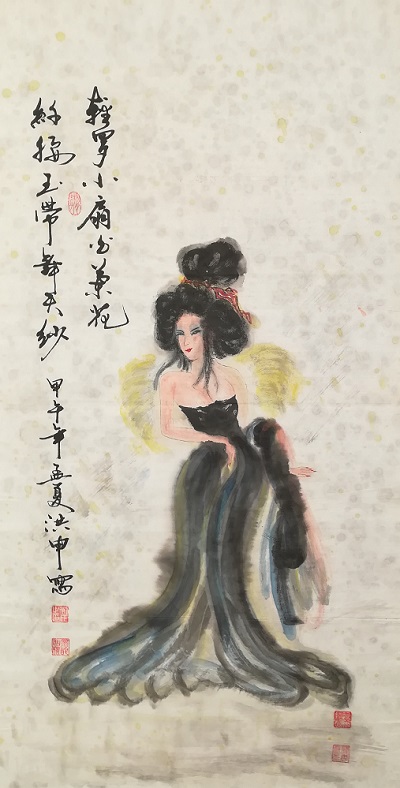 輕罗小扇白兰花
纤腰玉带舞天纱
甲午年孟夏洪申写